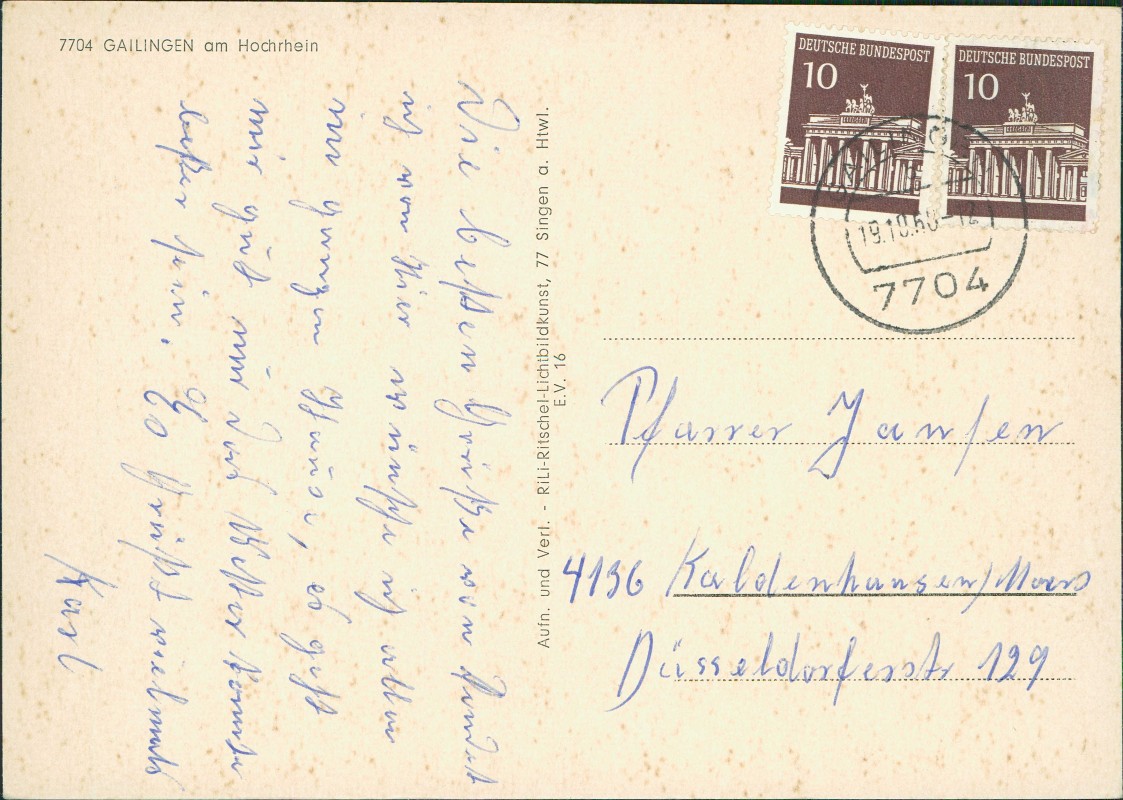 7704 GAILINGEN am Hochrhein
DEUTSCHE BUNDESPOST
10
DEUTSCHE BUNDESPOST
10
19.10.60-12
7704
Die besten Grüße von
ich von hier wünsche ich allen
im ganzen Hause, es geht
mir gut nur das Wetter könnte
besser sein. Es grüßt vielmals
Karl
Aufn. und Verl. - RiLi-Ritschel-Lichtbildkunst, 77 Singen a. Htwl.
E.V. 16
Pfarrer Jansen
4136 Kaldenhausen/Moers
Düsseldorferstr 129